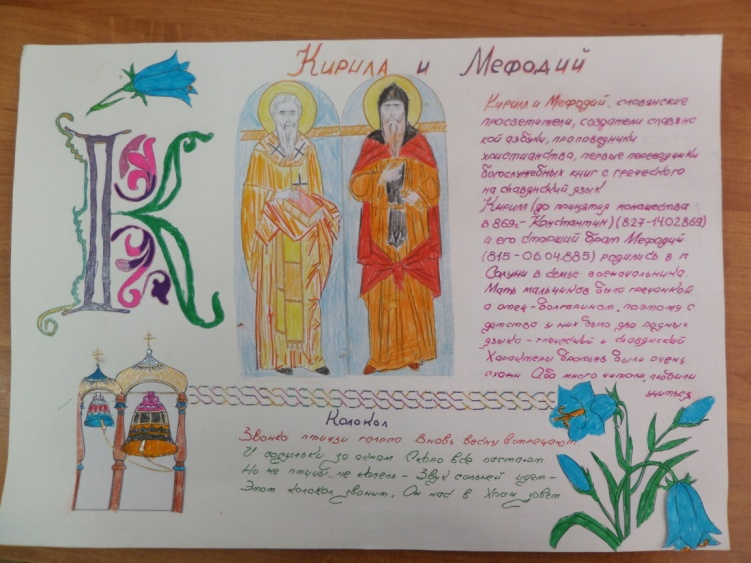 Кирила и Мефодий
Кирилл и Мефодий, славянские
просветители, создатели славянс
кой азбуки, проповедники
христианства, первые переводчики
богослужебных книг с греческого
на славянский язык
Кирилл (до принятия монашества
в 869г - Константин) (827-14.02.869)
и его старший брат Мефодий
(815-06.04.885) родились в г
Солуни в семье военачальника
Мать мальчиков была гречанкой,
а отец - болгарином, поэтому с
детства у них было два родных
языка - греческий и славянский
Характеры братьев были очень
схожи Оба много читали, любили
учиться
Колокол
Звонко птичьи голоса вновь весну встречают
И сосульки за окном Скоро все растают.
Но не птицы, не капель - Звук сильней идет -
Этот колокол звонит, Он нас в Храм зовет